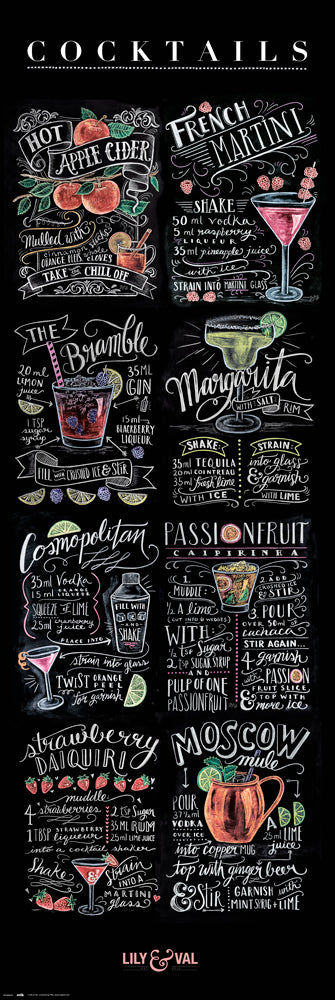 COCKTAILS
HOT
APPLE CIDER
Mulled with
cinnamon sticks
ORANGE PEELS & CLOVES
TAKE THE CHILL OFF
FRENCH
MARTINI
SHAKE
50 ml vodka
5 ml raspberry
LIQUEUR
35 ml pineapple juice
with ice
STRAIN INTO MARTINI GLASS
THE
Bramble
20 ml
LEMON
juice
35 ML
GIN
1 TSP
sugar
syrup
15 ml
BLACKBERRY
LIQUEUR
FILL with CRUSHED ICE & STIR
Margarita
WITH SALT RIM
SHAKE:
35ml TEQUILA
20 ml COINTREAU
35 ml fresh lime
WITH ICE
STRAIN:
into glass
& garnish
WITH LIME
Cosmopolitan
35 ml Vodka
15 ml ORANGE
LIQUEUR
SQUEEZE OF LIME
25 ml cranberry
juice
PLACE INTO
FILL WITH
ICE
AND
SHAKE
strain into glass
TWIST ORANGE
PEEL
for garnish
PASSIONFRUIT
CAIPIRINHA
1.
MUDDLE:
1/2 A lime
(CUT INTO 8 WEDGES)
WITH
1/2 tsp Sugar
2 tsp SUGAR SYRUP
AND
PULP OF ONE
PASSIONFRUIT
2. ADD
CRUSHED ICE
& STIR
3. POUR
OVER 50ml of
cachaca
STIR AGAIN...
4. garnish
with PASSION
FRUIT SLICE
& TOP WITH
more ice
strawberry
DAIQUIRI
muddle
4 strawberries
1 TBSP STRAWBERRY
liqueur
2 TSP Sugar
35 ML RUM
25ml LIME
juice
into a cocktail shaker
Shake
&
Strain
INTO A
MARTINI
glass
MOSCOW
mule
POUR
37 1/2 ml
VODKA
OVER ICE
25 ml LIME
juice
into copper MUG
top with ginger beer
& Stir
GARNISH with
MINT SPRIG + LIME
LILY & VAL